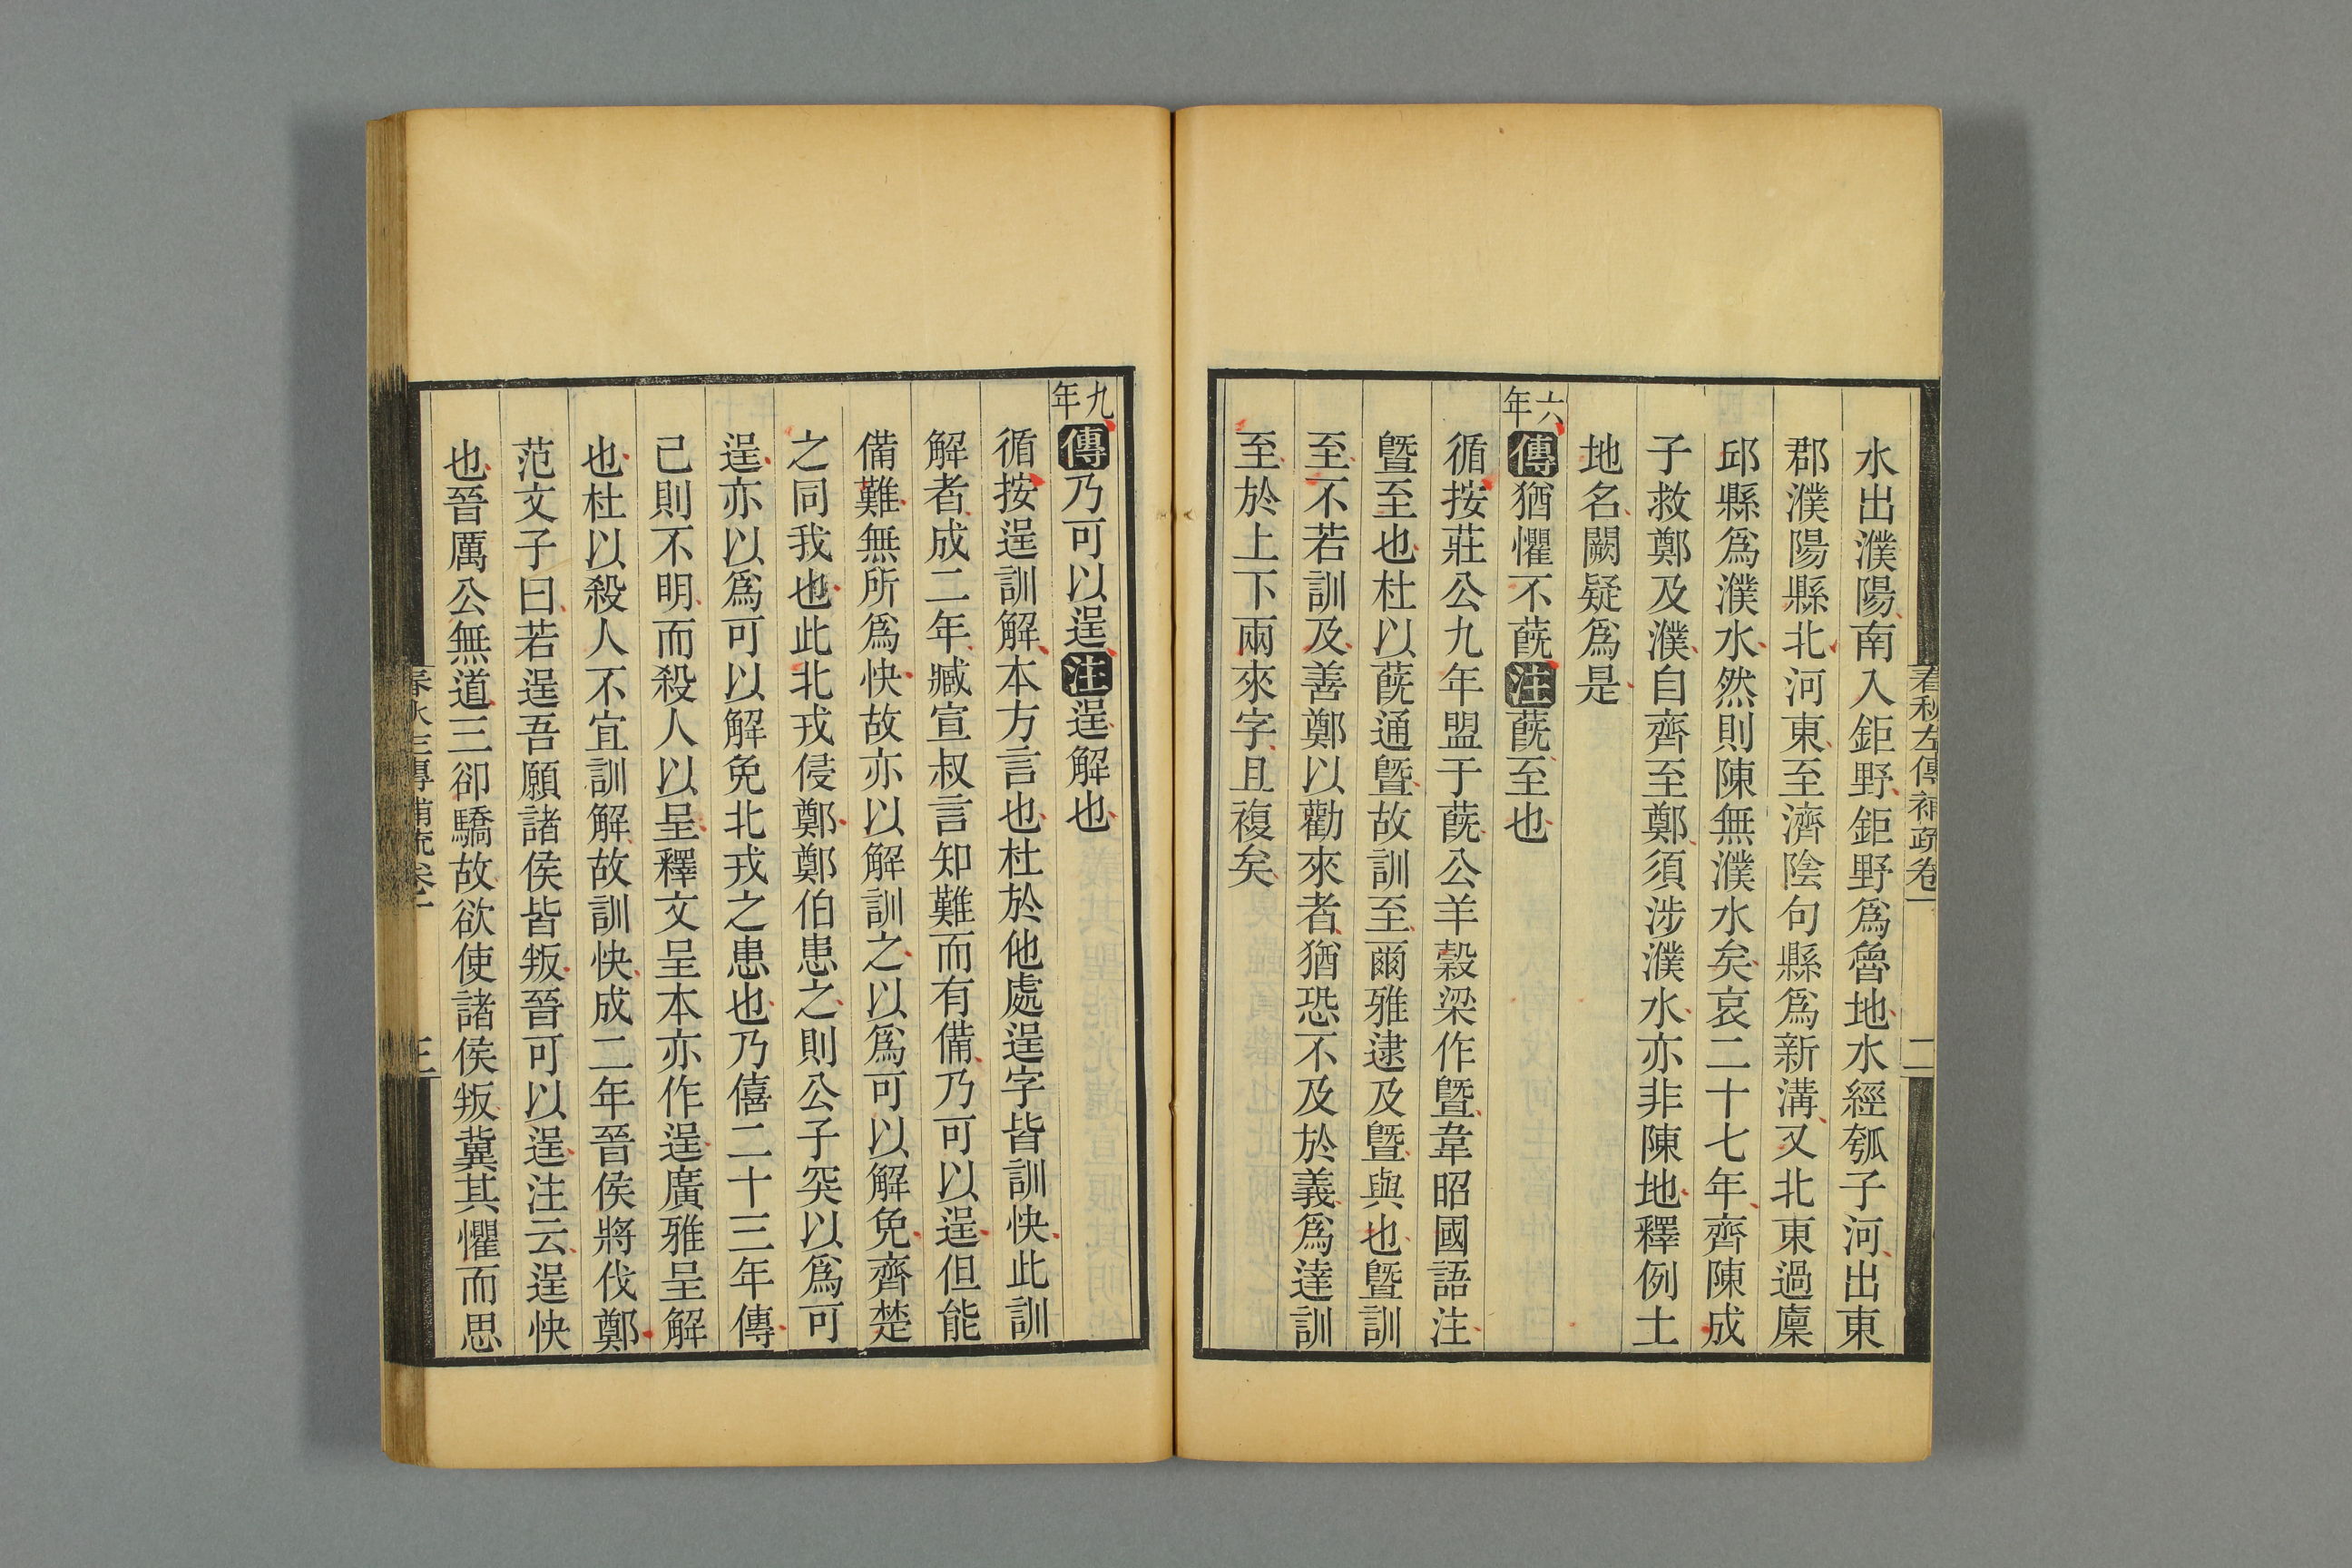 春秋左傳補疏卷一
二
水出濮陽南入鉅野鉅野爲魯地水經瓠子河出東
郡濮陽縣北河東至濟陰句縣爲新溝又北東過廩
邱縣爲濮水然則陳無濮水矣哀二十七年齊陳成
子救鄭及濮自齊至鄭須涉濮水亦非陳地釋例土
地名闕疑爲是
六年傳猶懼不蔇注蔇至也
循按莊公九年盟于蔇公羊穀梁作曁韋昭國語注
曁至也杜以蔇通曁故訓至爾雅逮及曁與也曁訓
至不若訓及善鄭以勸來者猶恐不及於義爲達訓
至於上下兩來字且複矣
九年傳乃可以逞注逞解也
循按逞訓解本方言也杜於他處逞字皆訓快此訓
解者成二年臧宣叔言知難而有備乃可以逞但能
備難無所爲快故亦以解訓之以爲可以解免齊楚
之同我也此北戎侵鄭鄭伯患之則公子突以爲可
逞亦以爲可以解免北戎之患也乃僖二十三年傳
己則不明而殺人以呈釋文呈本亦作逞廣雅呈解
也杜以殺人不宜訓解故訓快成二年晉侯將伐鄭
范文子曰若逞吾願諸侯皆叛晉可以逞注云逞快
也晉厲公無道三郤驕故欲使諸侯叛冀其懼而思
春秋左傳補疏卷一
三